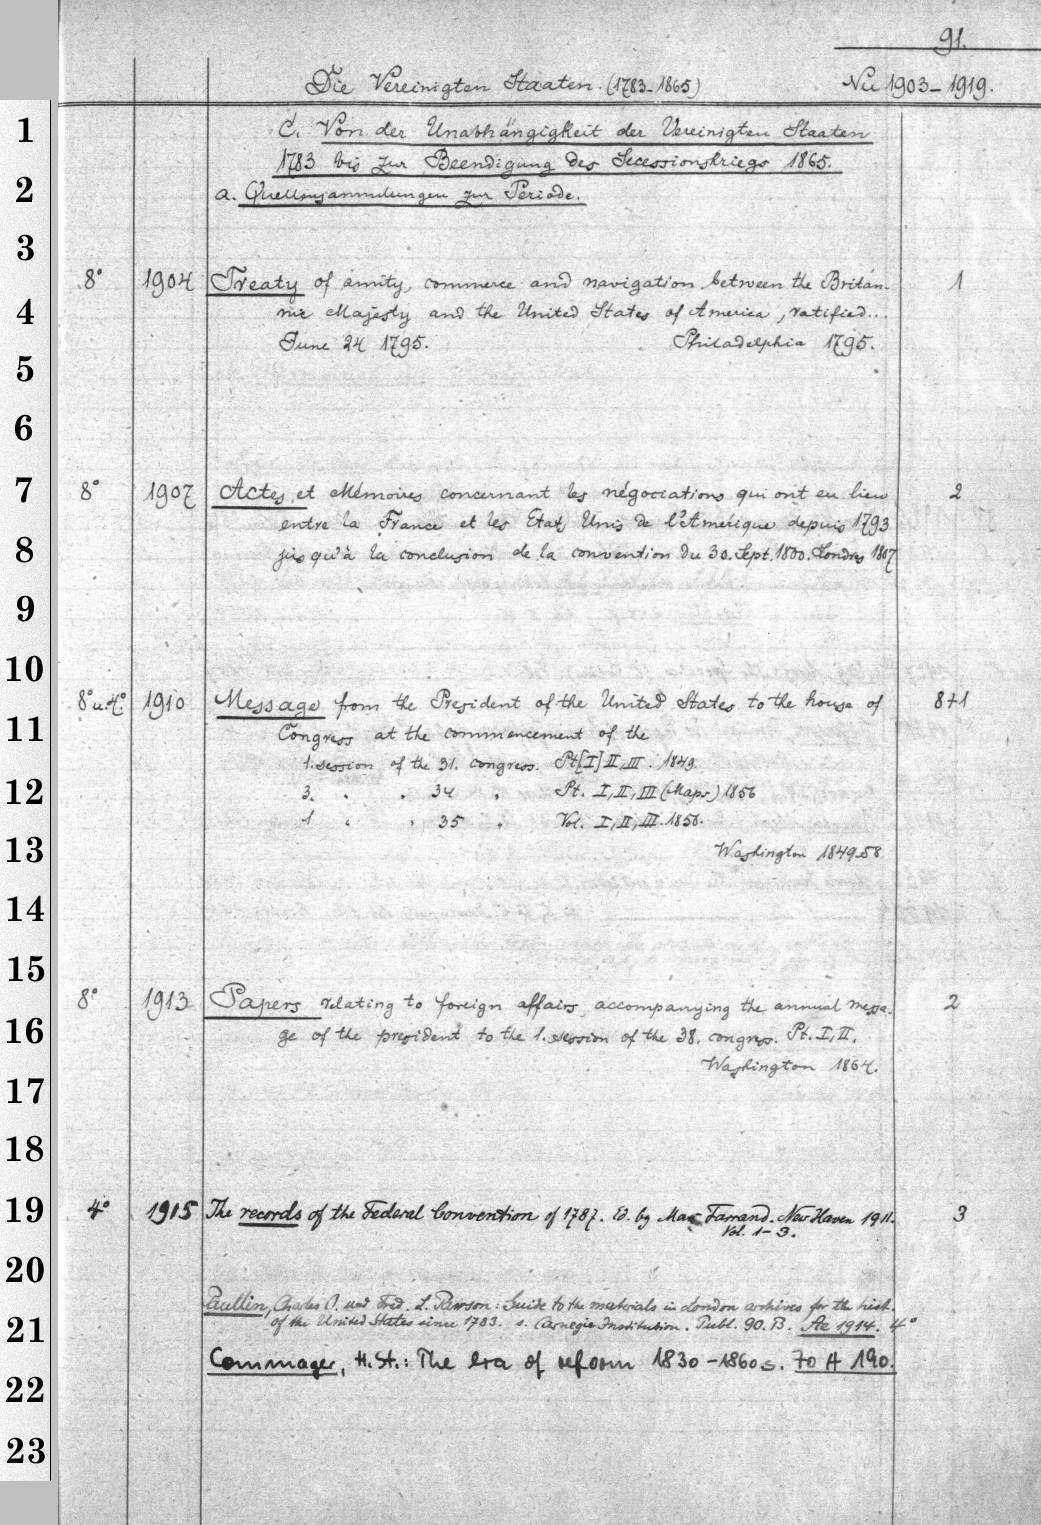 91.
Die Vereinigten Staaten. (1783-1865) Nu 1903-1919.
C. Von der Unabhängigkeit der Vereinigten Staaten
1783 bis zur Beendigung des Secessionskriegs 1865.
a. Quellensammlungen zur Periode.
8° 1904 Treaty of amity, commerce and navigation between the Britan-
nic Majesty and the United States of America, ratified...
June 24 1795. Philadelphia 1795. 1
8° 1907 Actes et Mémoires concernant les négociations qui ont eu lieu 2
entre la France et les Etats Unis de l'Amérique depuis 1793
jusqu'à la conclusion de la convention du 30. Sept. 1800. Londres 1807
8° u. 4° 1910 Message from the President of the United States to the house of 8+1
Congress at the commencement of the
1. session of the 31. congress. Pt [I] II, III. 1849.
3. " " 34 " Pt. I, II, III (Maps) 1856
1 " " 35 " Vol. I, II, III. 1858.
Washington 1849-58
8° 1913 Papers relating to foreign affairs, accompanying the annual messa- 2
ge of the president to the 1. session of the 38. congress. Pt. I, II.
Washington 1864.
4° 1915 The records of the Federal Convention of 1787. Ed. by Max Farrand. New Haven 1911. 3
Vol. 1-3.
Paullin, Charles O. und Fred. L. Paxson: Guide to the materials in London archives for the hist.
of the United States since 1783. s. Carnegie Institution. Publ. 90. B. Ac 1914. 4°
Commager, H. St.: The era of reform 1830-1860 s. 70 A 190.
1
2
3
4
5
6
7
8
9
10
11
12
13
14
15
16
17
18
19
20
21
22
23